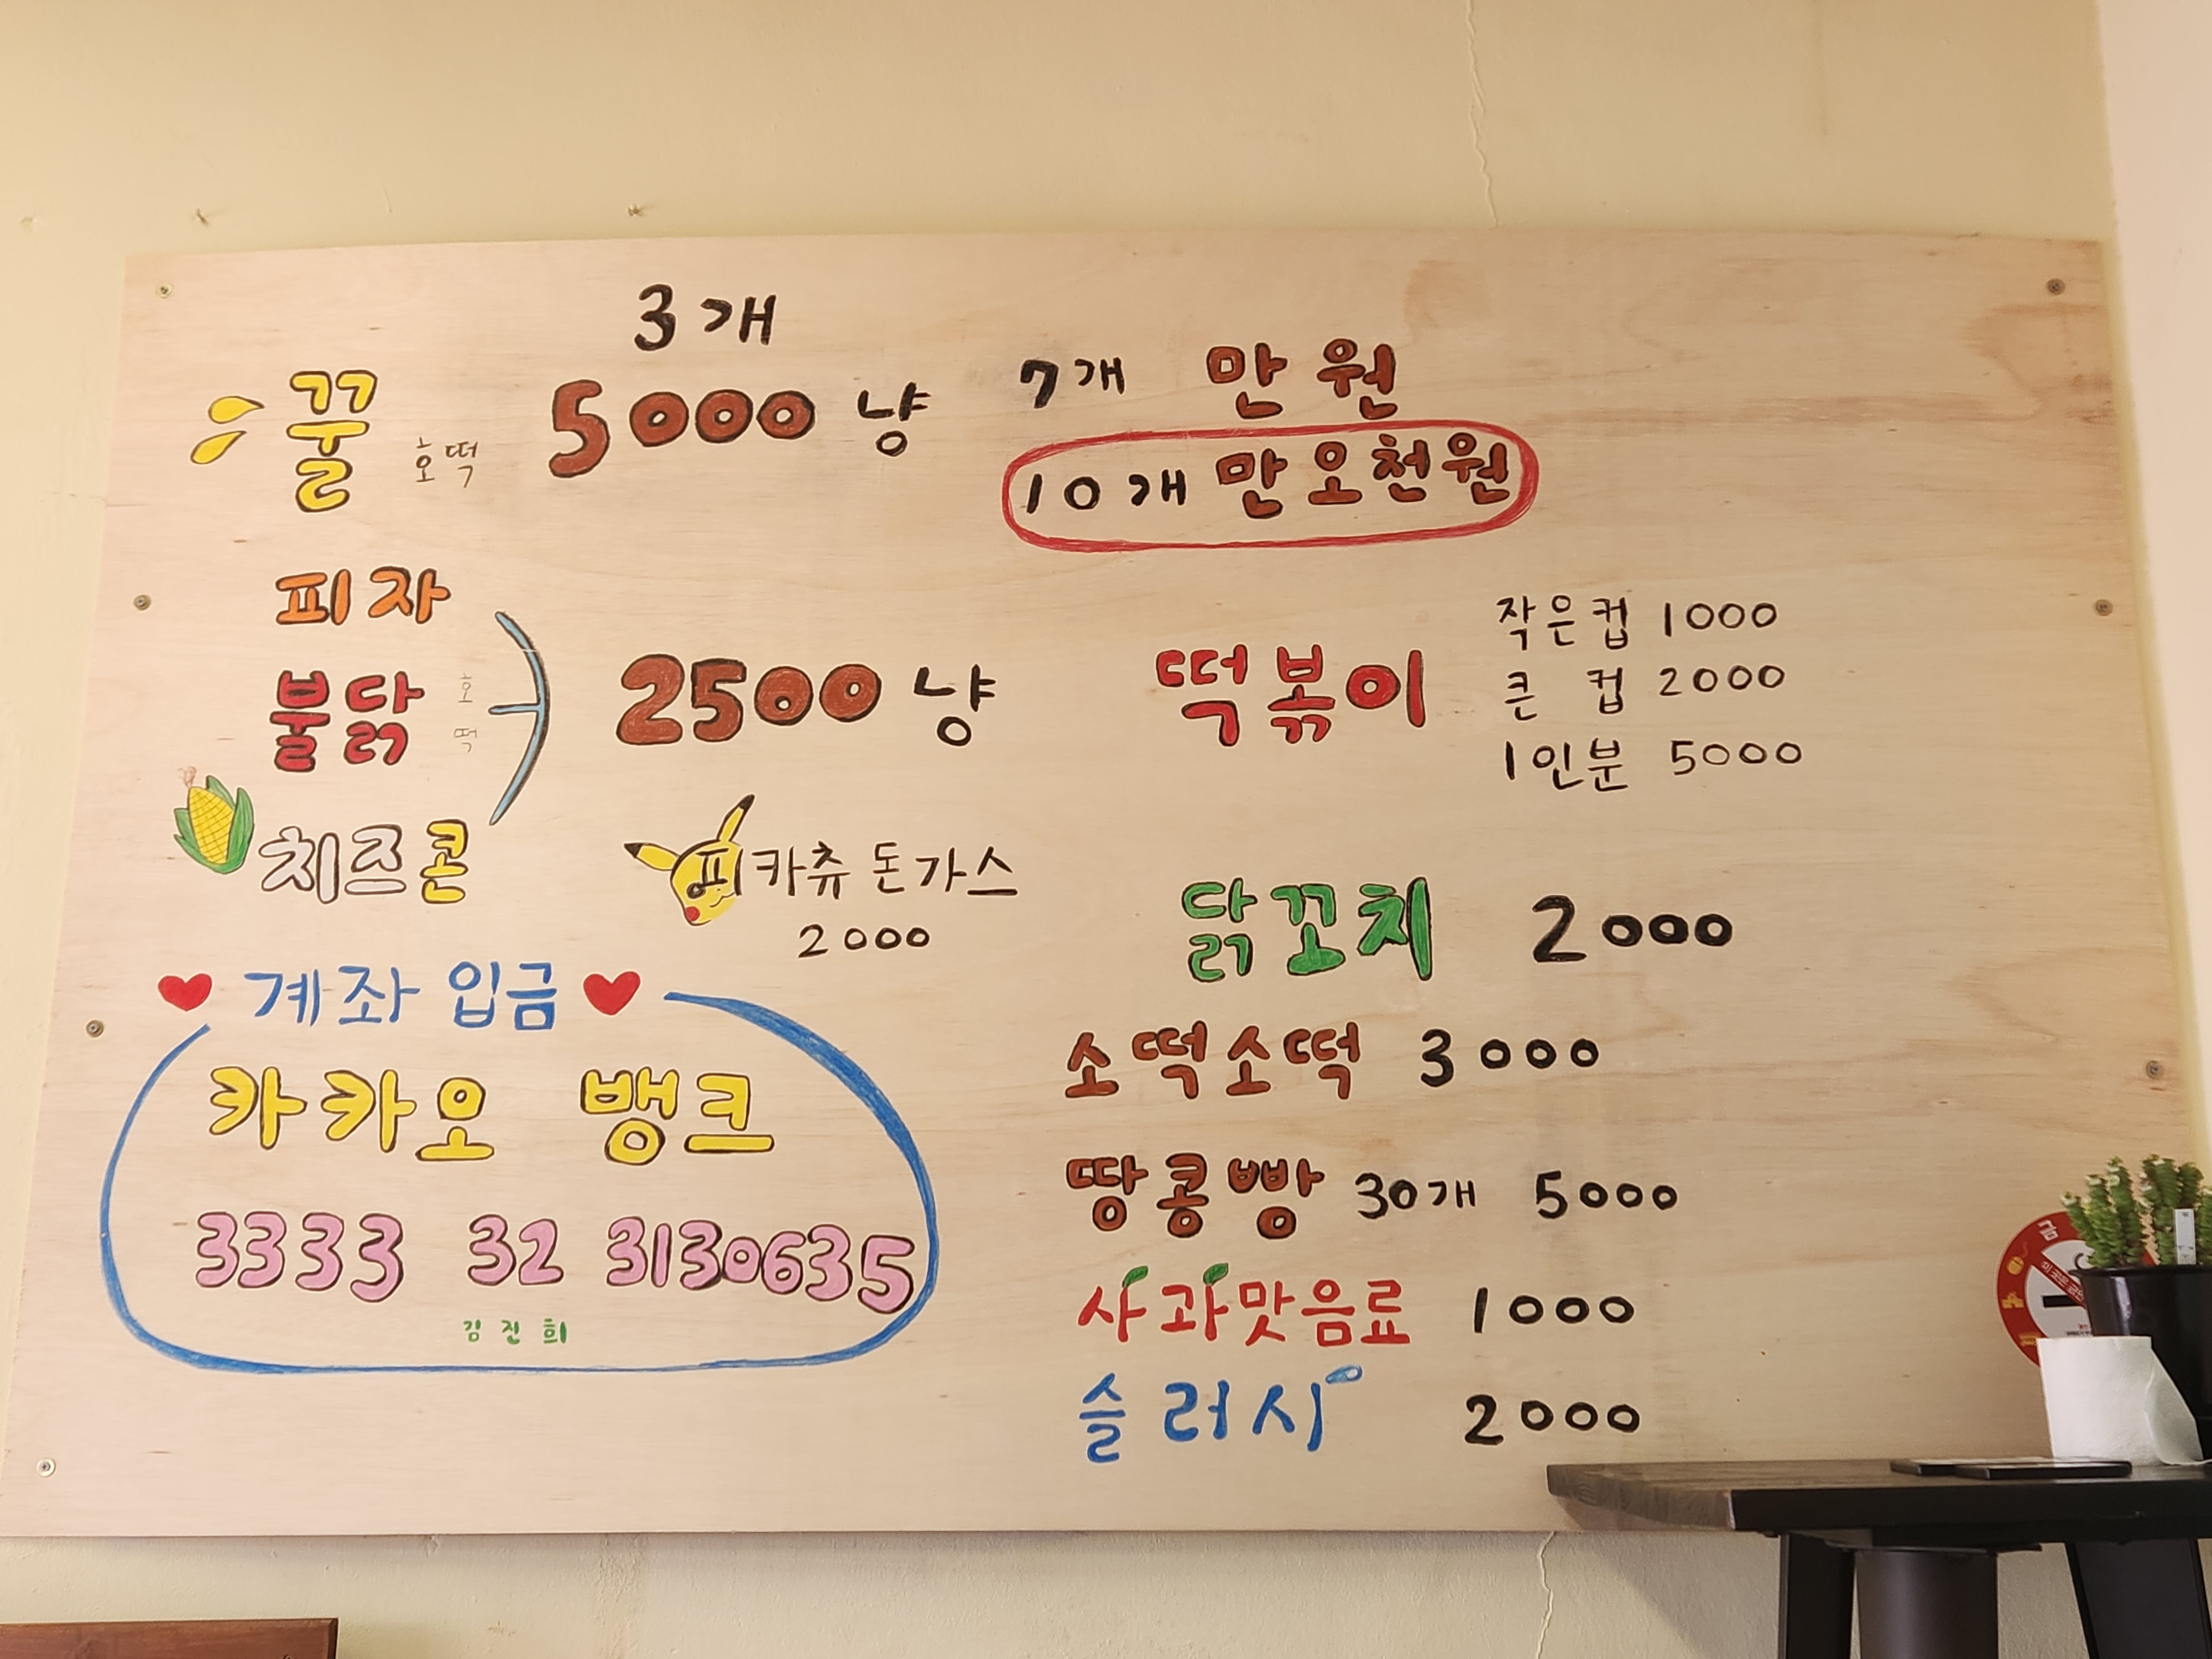 3개
꿀 호떡 5000냥
7개 만원
10개 만오천원
피자
불닭 호떡
치즈콘
2500냥
피카츄 돈가스
2000
계좌 입금
카카오 뱅크
3333 32 3130635
김진희
떡볶이
작은컵 1000
큰 컵 2000
1인분 5000
닭꼬치 2000
소떡소떡 3000
땅콩빵 30개 5000
사과맛음료 1000
슬러시 2000
금